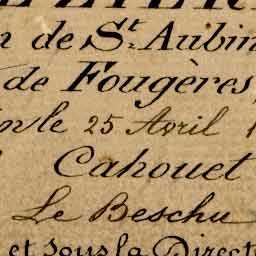 n de St. Aubin
de Fougères,
le 25 Avril 1
Cahouet
Le Beschu
et sous la Direct